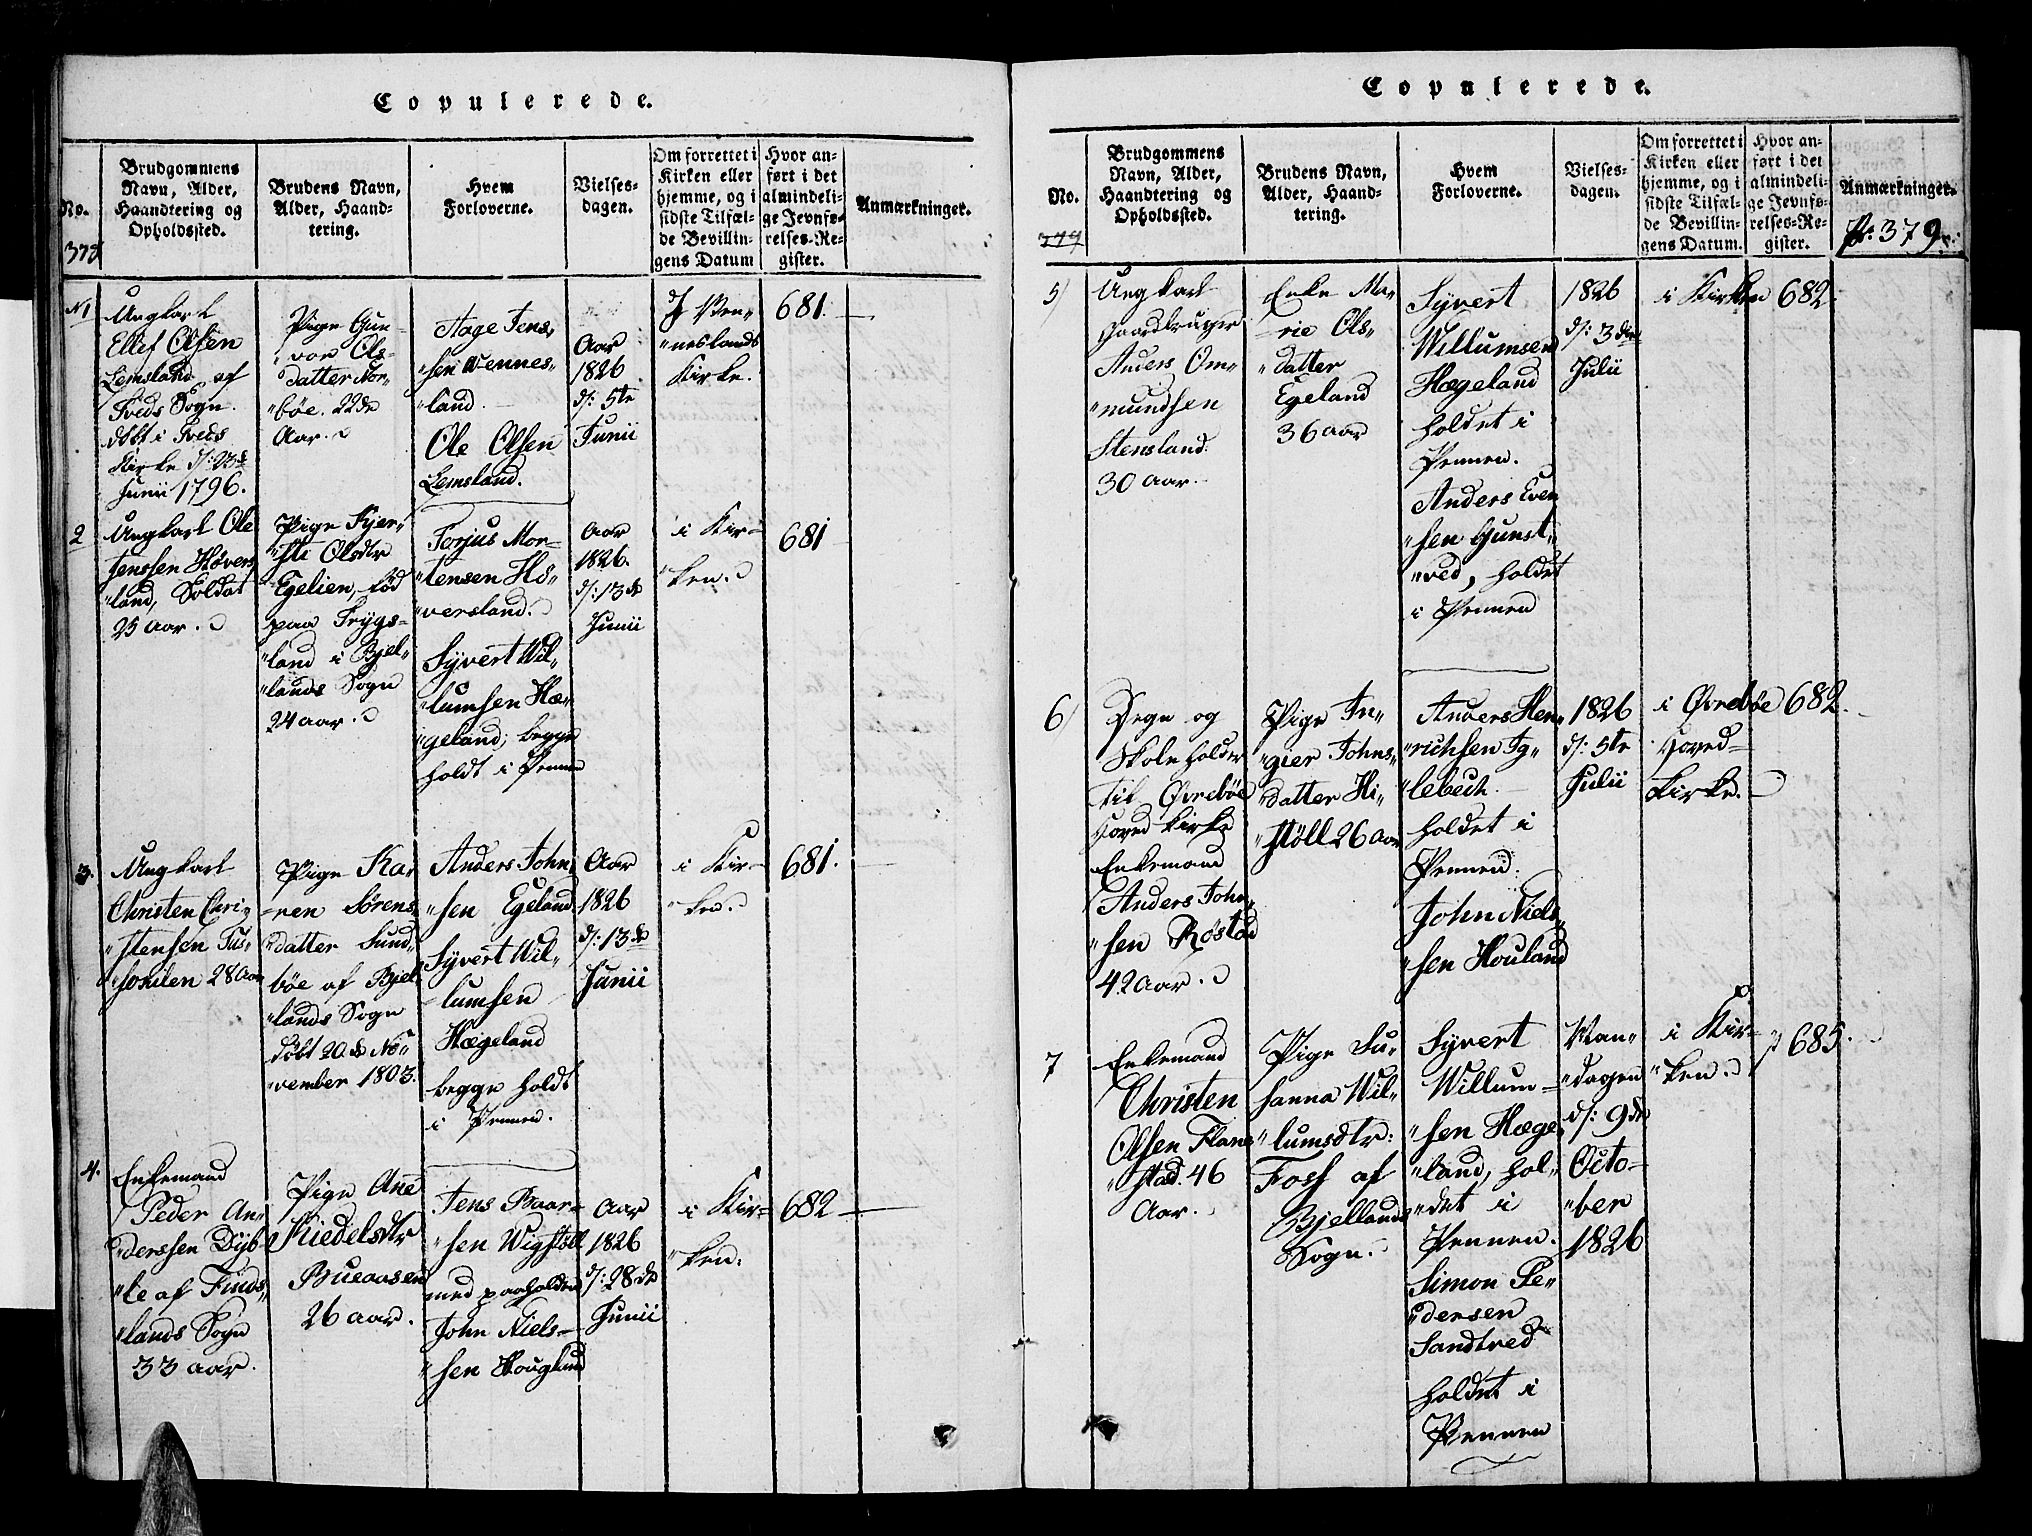 Copulerede.
No.
378
Brudgommens
Navn, Alder,
Haandtering og
Opholdssted.
Brudens Navn,
Alder, Haand-
tering.
Hvem
Forloverne.
Vielses-
dagen.
Om forrettet i
Kirken eller
hjemme, og i
sidste Tilfæl-
de Bevillin-
gens Datum
Hvor an-
ført i det
almindeli-
ge Jevnfø-
relses-Re-
gister.
Anmærkninger.
N1
Ungkarl
Ellef Olsen
Lemsland af
Tveds Sogn.
døbt i Tveds
Kirke d: 23de
Junii 1796.
Pige Gun-
vor Ols-
datter Nor-
"bøe. 22de
Aar.
Aage Jens,
"sen Wennes-
"land.
Ole Olsen
Lemsland.
Aar
1826
d: 5te
Junii
I Wen-
"neslands
Kirke.
681
2
Ungkarl Ole
Jenssen Høvers
"land, Soldat
25 aar.
Pige Kjer-
"sti Olsdtr
Egelien, fød
paa Trygs-
"land i Bjel-
"lands Sogn
24 aar.
Torjus Mor-
"tensen Hø-
"versland.
Syvert Wil-
"lumsen Hæ-
"geland; begge
holdt i Pennen
Aar
1826.
d: 13de
Junii
i Kir-
"ken.
681
3.
Ungkarl
Christen Chri-
"stensen Tus-
"sokilen 28 Aar
Pige Ka-
"ren Sørens
"datter Sund-
bøe af Bjel-
"lands Sogn
døbt 20de No-
"vember 1803.
Anders John-
"sen Egeland
Syvert Wil-
"lumsen
Hægeland
begge holdt
i Pennen.
Aar
1826
d: 13de
Junii
i Kir-
"ken.
681.
4.
Enkemand
Peder An-
"derssen Dyb
"le af Finds-
"lands Sogn
33 aar.
Pige Ane
Kiedelsdtr
Bueaasen
26 aar.
Jens Baar-
"sen Wigstøll
med paaholden
John Niels-
"sen Houglund
Aar
1826
d: 28de
Junii
i Kir-
"ken.
682
Copulerede.
No.
379
Brudgommens
Navn, Alder,
Haandtering og
Opholdssted.
Brudens Navn,
Alder, Haand-
tering.
Hvem
Forloverne.
Vielses-
dagen.
Om forrettet i
Kirken eller
hjemme, og i
sidste Tilfæl-
de Bevillin-
gens Datum.
Hvor an-
ført i det
almindeli-
ge Jevnfø-
relses-Re-
gister.
Anmærkninger.
P. 379.
5)
Ungkarl
Gaardbruger
Anders Om-
"mundsen
Stensland.
30 aar.
Enke Ma-
"rie Ols-
"datter
Egeland
36 aar
Syvert
Willumsen
Hægeland
holdet i
Pennen.
Anders Even
"sen Gunst-
"ved, holdet
i Pennen
1826
d: 3die
Julii
i Kirken
682
6)
Degn og
Skoleholder
til Øvrebøe
Hoved Kirke
Enkemand
Anders John-
"sen Røstad
42 aar.
Pige In-
"gier Johns-
"datter Hi-
"støll 26 aar
Anders Hen-
"richsen Ig-
"lebech.
holdet i
Pennen.
John Niels-
"sen Houland
1826
d: 5te
Julii
i Øvrebøe
Hoved-
Kirke.
682.
7
Enkemand
Christen
Olsen Flane
"stad. 46
Aar.
Pige Su-
"sanna Wil-
"lumsdtr:
Foss af
Bjellands
Sogn.
Syvert
Willum-
"sen Hæge
"land, hol-
"det i
Pennen.
Simon Pe-
"dersen
Sandtved
holdet i
Pennen
Man-
"dagen
d: 9de
Octo-
"ber
1826
i Kir-
"ken.
p 685.